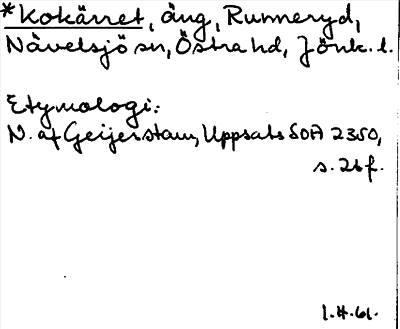 *Kokärret, äng, Runneryd,
Nävelsjö sn, Östra hd, Jönk. l.
Etymologi:
N. af Geijerstam, Uppsats SOA 2350,
s. 26 f.
I.H.61.